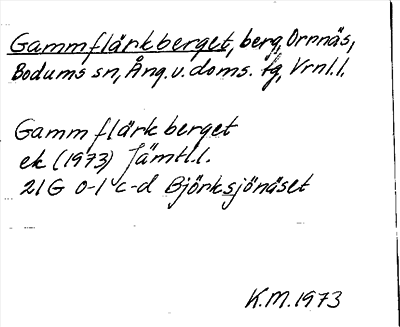 Gammflärkberget, berg, Ornnäs,
Bodums sn, Ång. v. doms. tg, Vrnl. l.
Gammflärkberget
ek (1973) Jämtl. l.
21G 0-1 c-d Björksjönäset
K.M. 1973